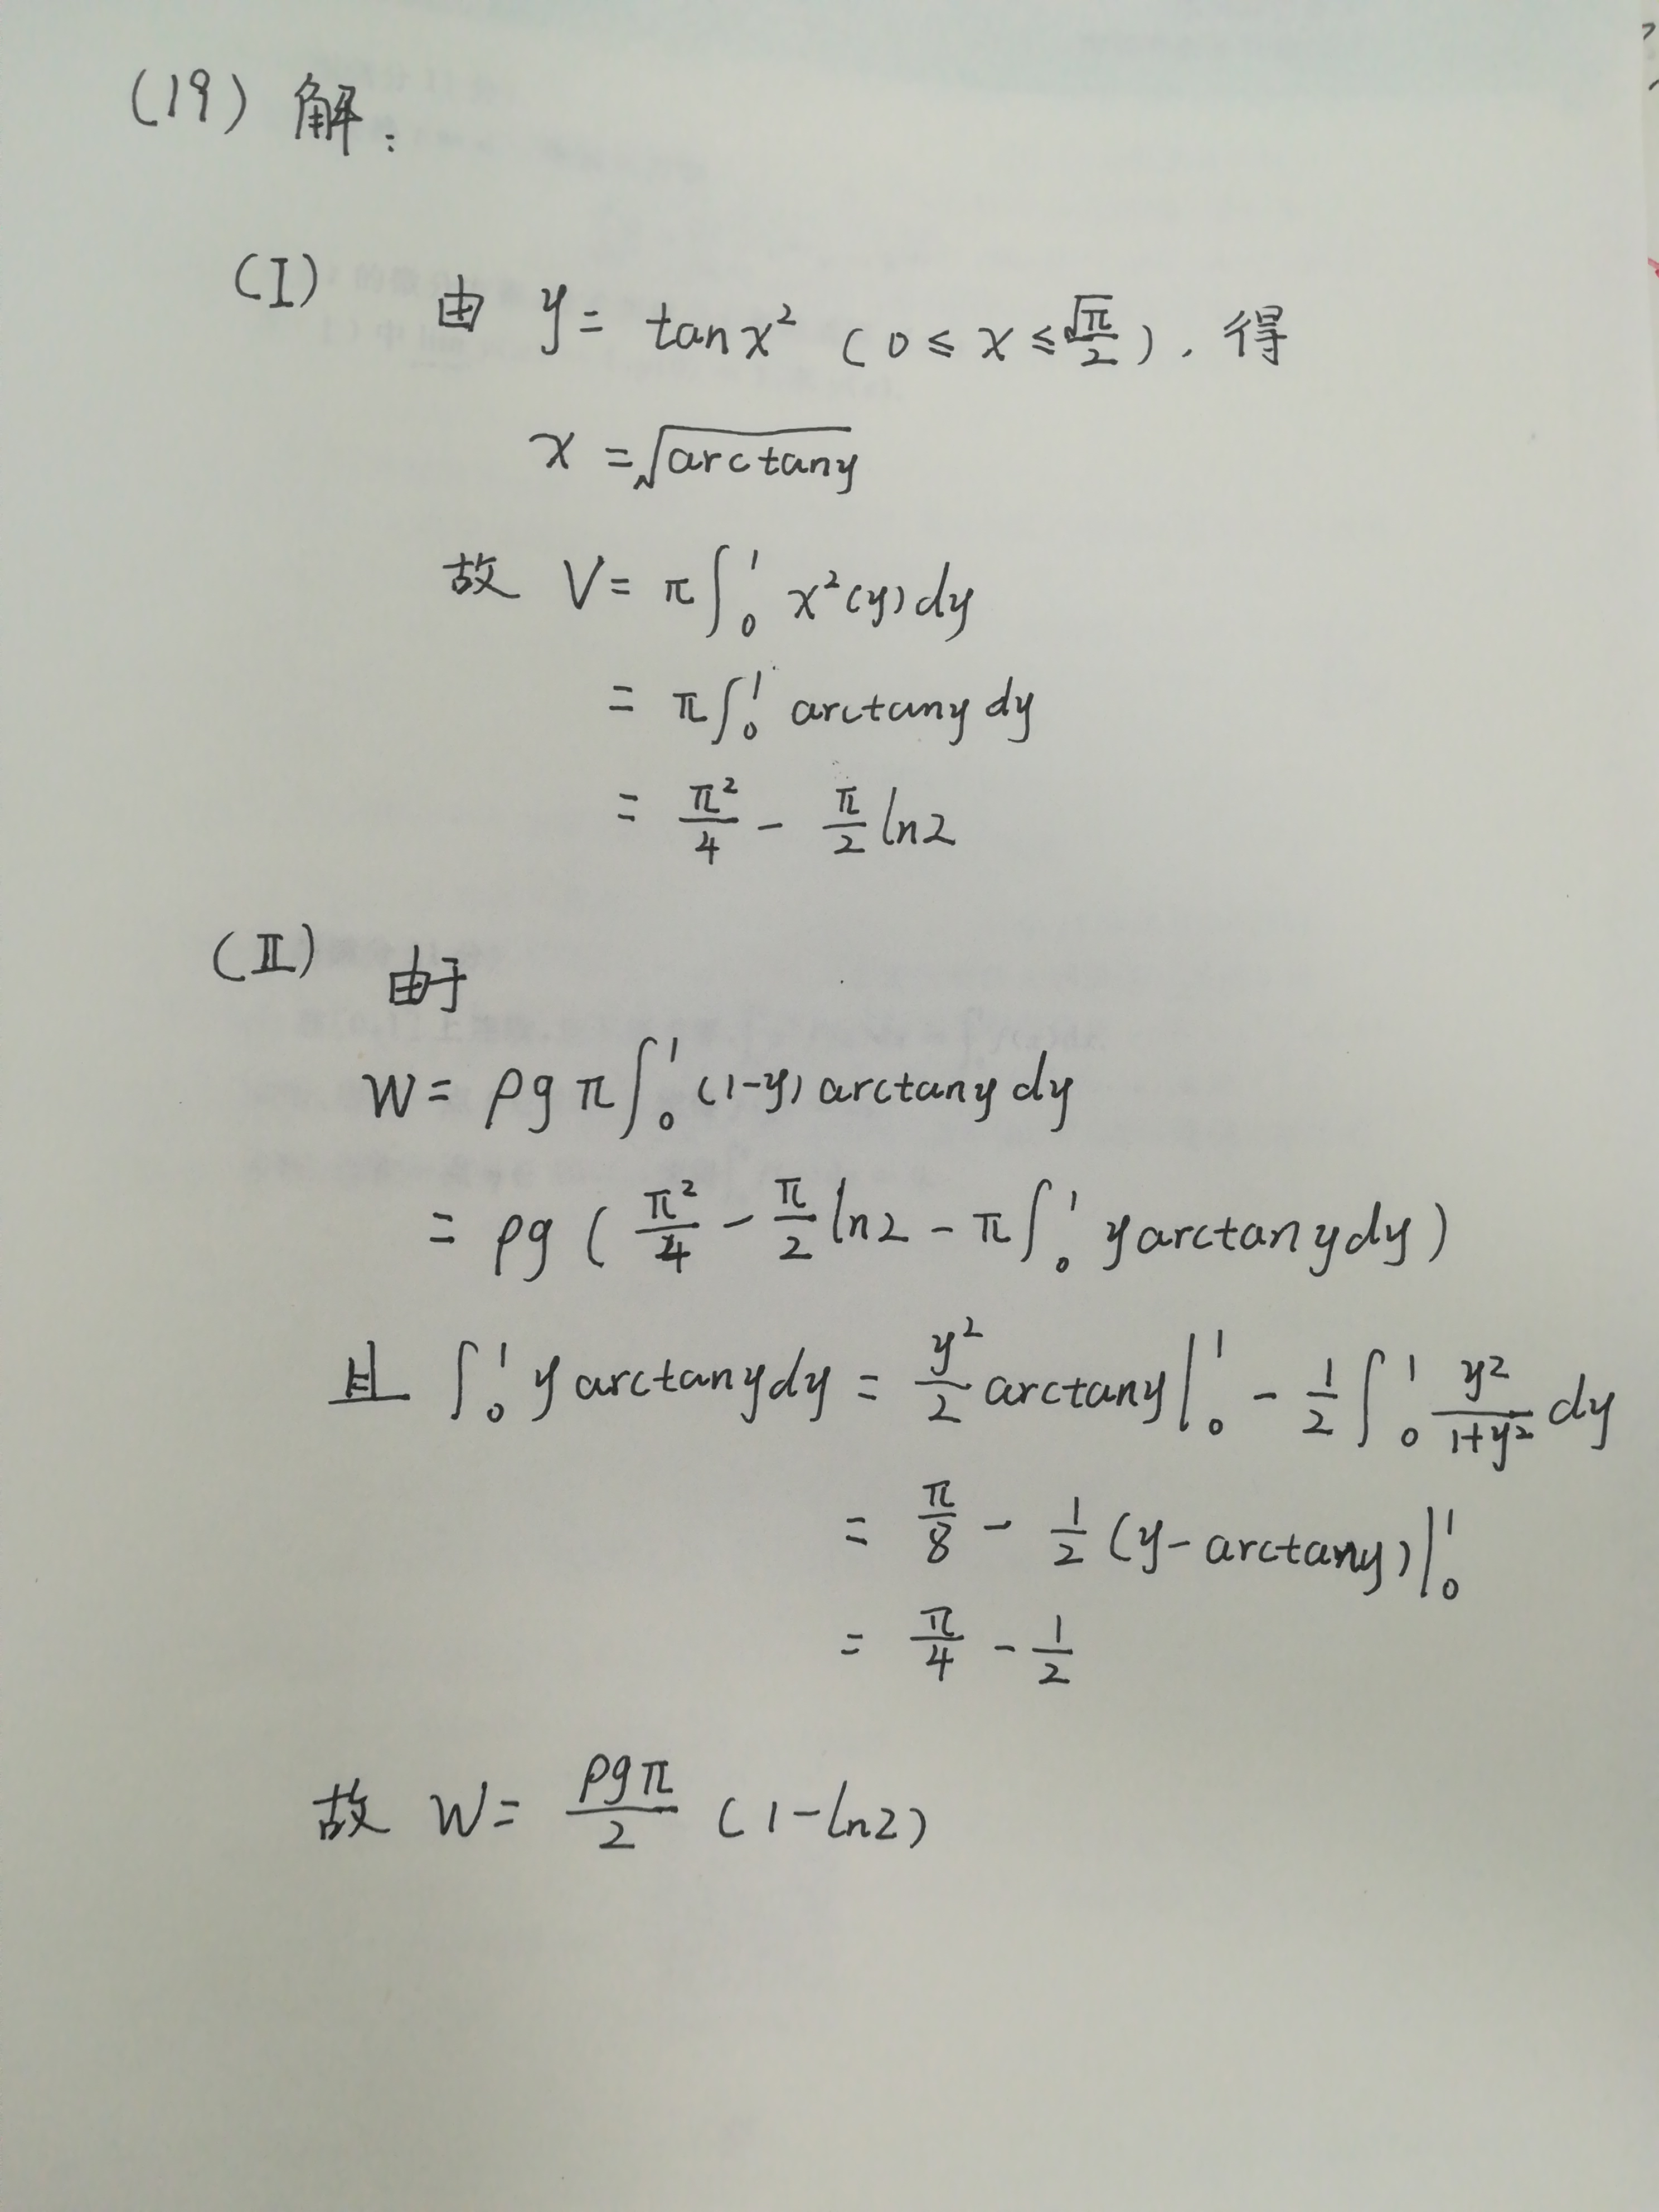 (19) 解：
(I) 由 y = tan x² (0 ≤ x ≤ √π/2), 得
x = √(arctan y)
故 V = π∫₀¹ x²(y) dy
= π∫₀¹ arctan y dy
= π²/4 - π/2 ln2
(II) 由于
W = ρgπ∫₀¹ (1-y) arctan y dy
= ρg ( π²/4 - π/2 ln2 - π∫₀¹ y arctan y dy )
且 ∫₀¹ y arctan y dy = y²/2 arctan y |₀¹ - 1/2 ∫₀¹ y²/(1+y²) dy
= π/8 - 1/2 (y - arctan y) |₀¹
= π/4 - 1/2
故 W = ρgπ/2 (1 - ln2)